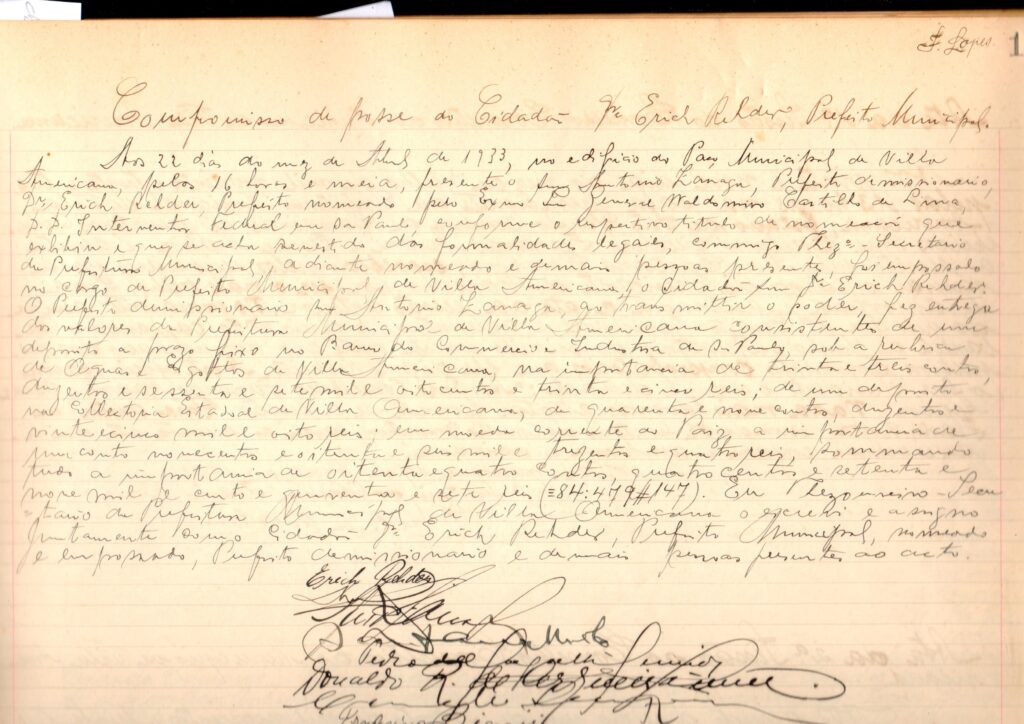 F. Lopes
1
Compromisso de posse do Cidadão Dr. Erich Rehder, Prefeito Municipal.
Aos 22 dias do mez de Abril de 1933, no edificio do Paço Municipal de Villa
Americana, pelas 16 horas e meia, presente o snr. Antonio Zanaga, Prefeito demissionario,
Dr. Erich Rehder, Prefeito nomeado pelo Exmo Snr. General Waldomiro Castilho de Lima,
D. D. Interventor Federal em São Paulo, conforme o respectivo titulo de nomeação que
exhibiu e que se acha revestido das formalidades legaes, commigo Thezº-Secretario
da Prefeitura Municipal, adiante nomeado e demais pessoas presentes, foi empossado
no cargo de Prefeito Municipal de Villa Americana o cidadão snr. Dr. Erich Rehder.
O Prefeito demissionario snr. Antonio Zanaga, ao transmittir o poder, fez entrega
dos valores da Prefeitura Municipal de Villa Americana consistentes de um
deposito a prazo fixo no Banco do Commercio e Industria de S. Paulo, sob a rubrica
de Aguas e Esgottos de Villa Americana, na importancia de trinta e treis contos,
duzentos e sessenta e sete mil e oitocentos e trinta e cinco reis; de um deposito
na Collectoria Estadoal de Villa Americana, de quarenta e nove contos duzentos e
vinte e cinco mil e oito reis; em moeda corrente do Paiz a importancia de
um conto novecentos e oitenta e seis mil e trezentos e quatro reis, sommando
tudo a importancia de oitenta e quatro contos, quatrocentos e setenta e
nove mil e cento e quarenta e sete reis (=84:479#147). Eu Thezoureiro-Secre
-tario da Prefeitura Municipal de Villa Americana o escrevi e assigno
juntamente com o Cidadão Dr. Erich Rehder, Prefeito Municipal, nomeado
e empossado, Prefeito demissionario e demais pessoas presentes ao acto.
Erich Rehder
Pedro
Donaldo